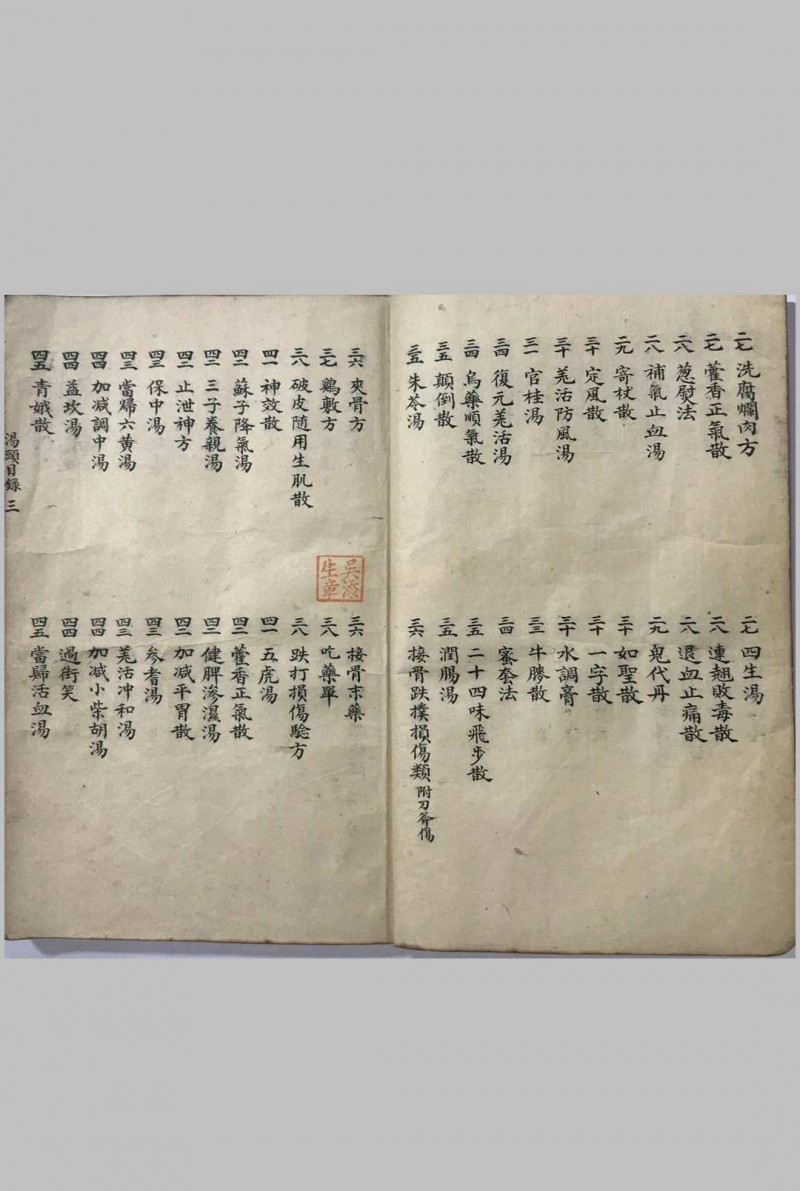 二七 洗腐爛肉方
二七 藿香正氣散
二八 蔥熨法
二八 補氣止血湯
二九 寄杖散
三十 定風散
三十 羌活防風湯
三一 官桂湯
三四 復元羌活湯
三四 烏藥順氣散
三五 顛倒散
三五 朱苓湯
二七 四生湯
二八 連翹敗毒散
二八 退血止痛散
二九 鬼代丹
三十 如聖散
三十 一字散
三十 水調膏
三三 牛勝散
三四 蜜套法
三五 二十四味飛步散
三五 潤腸湯
三六 接骨跌撲損傷類 附刀斧傷
三六 夾骨方
三七 鷄敷方
三八 破皮隨用生肌散
四一 神效散
四二 蘇子降氣湯
四二 三子養親湯
四二 止泄神方
四三 保中湯
四三 當歸六黃湯
四四 加減調中湯
四四 益坎湯
四五 青娥散
三六 接骨末藥
三八 吃藥單
三八 跌打損傷驗方
四一 五虎湯
四二 藿香正氣散
四二 健脾滲濕湯
四二 加減平胃散
四三 參耆湯
四三 羌活冲和湯
四四 加減小柴胡湯
四四 過街笑
四五 當歸活血湯
湯頭目錄 三
吳添生章